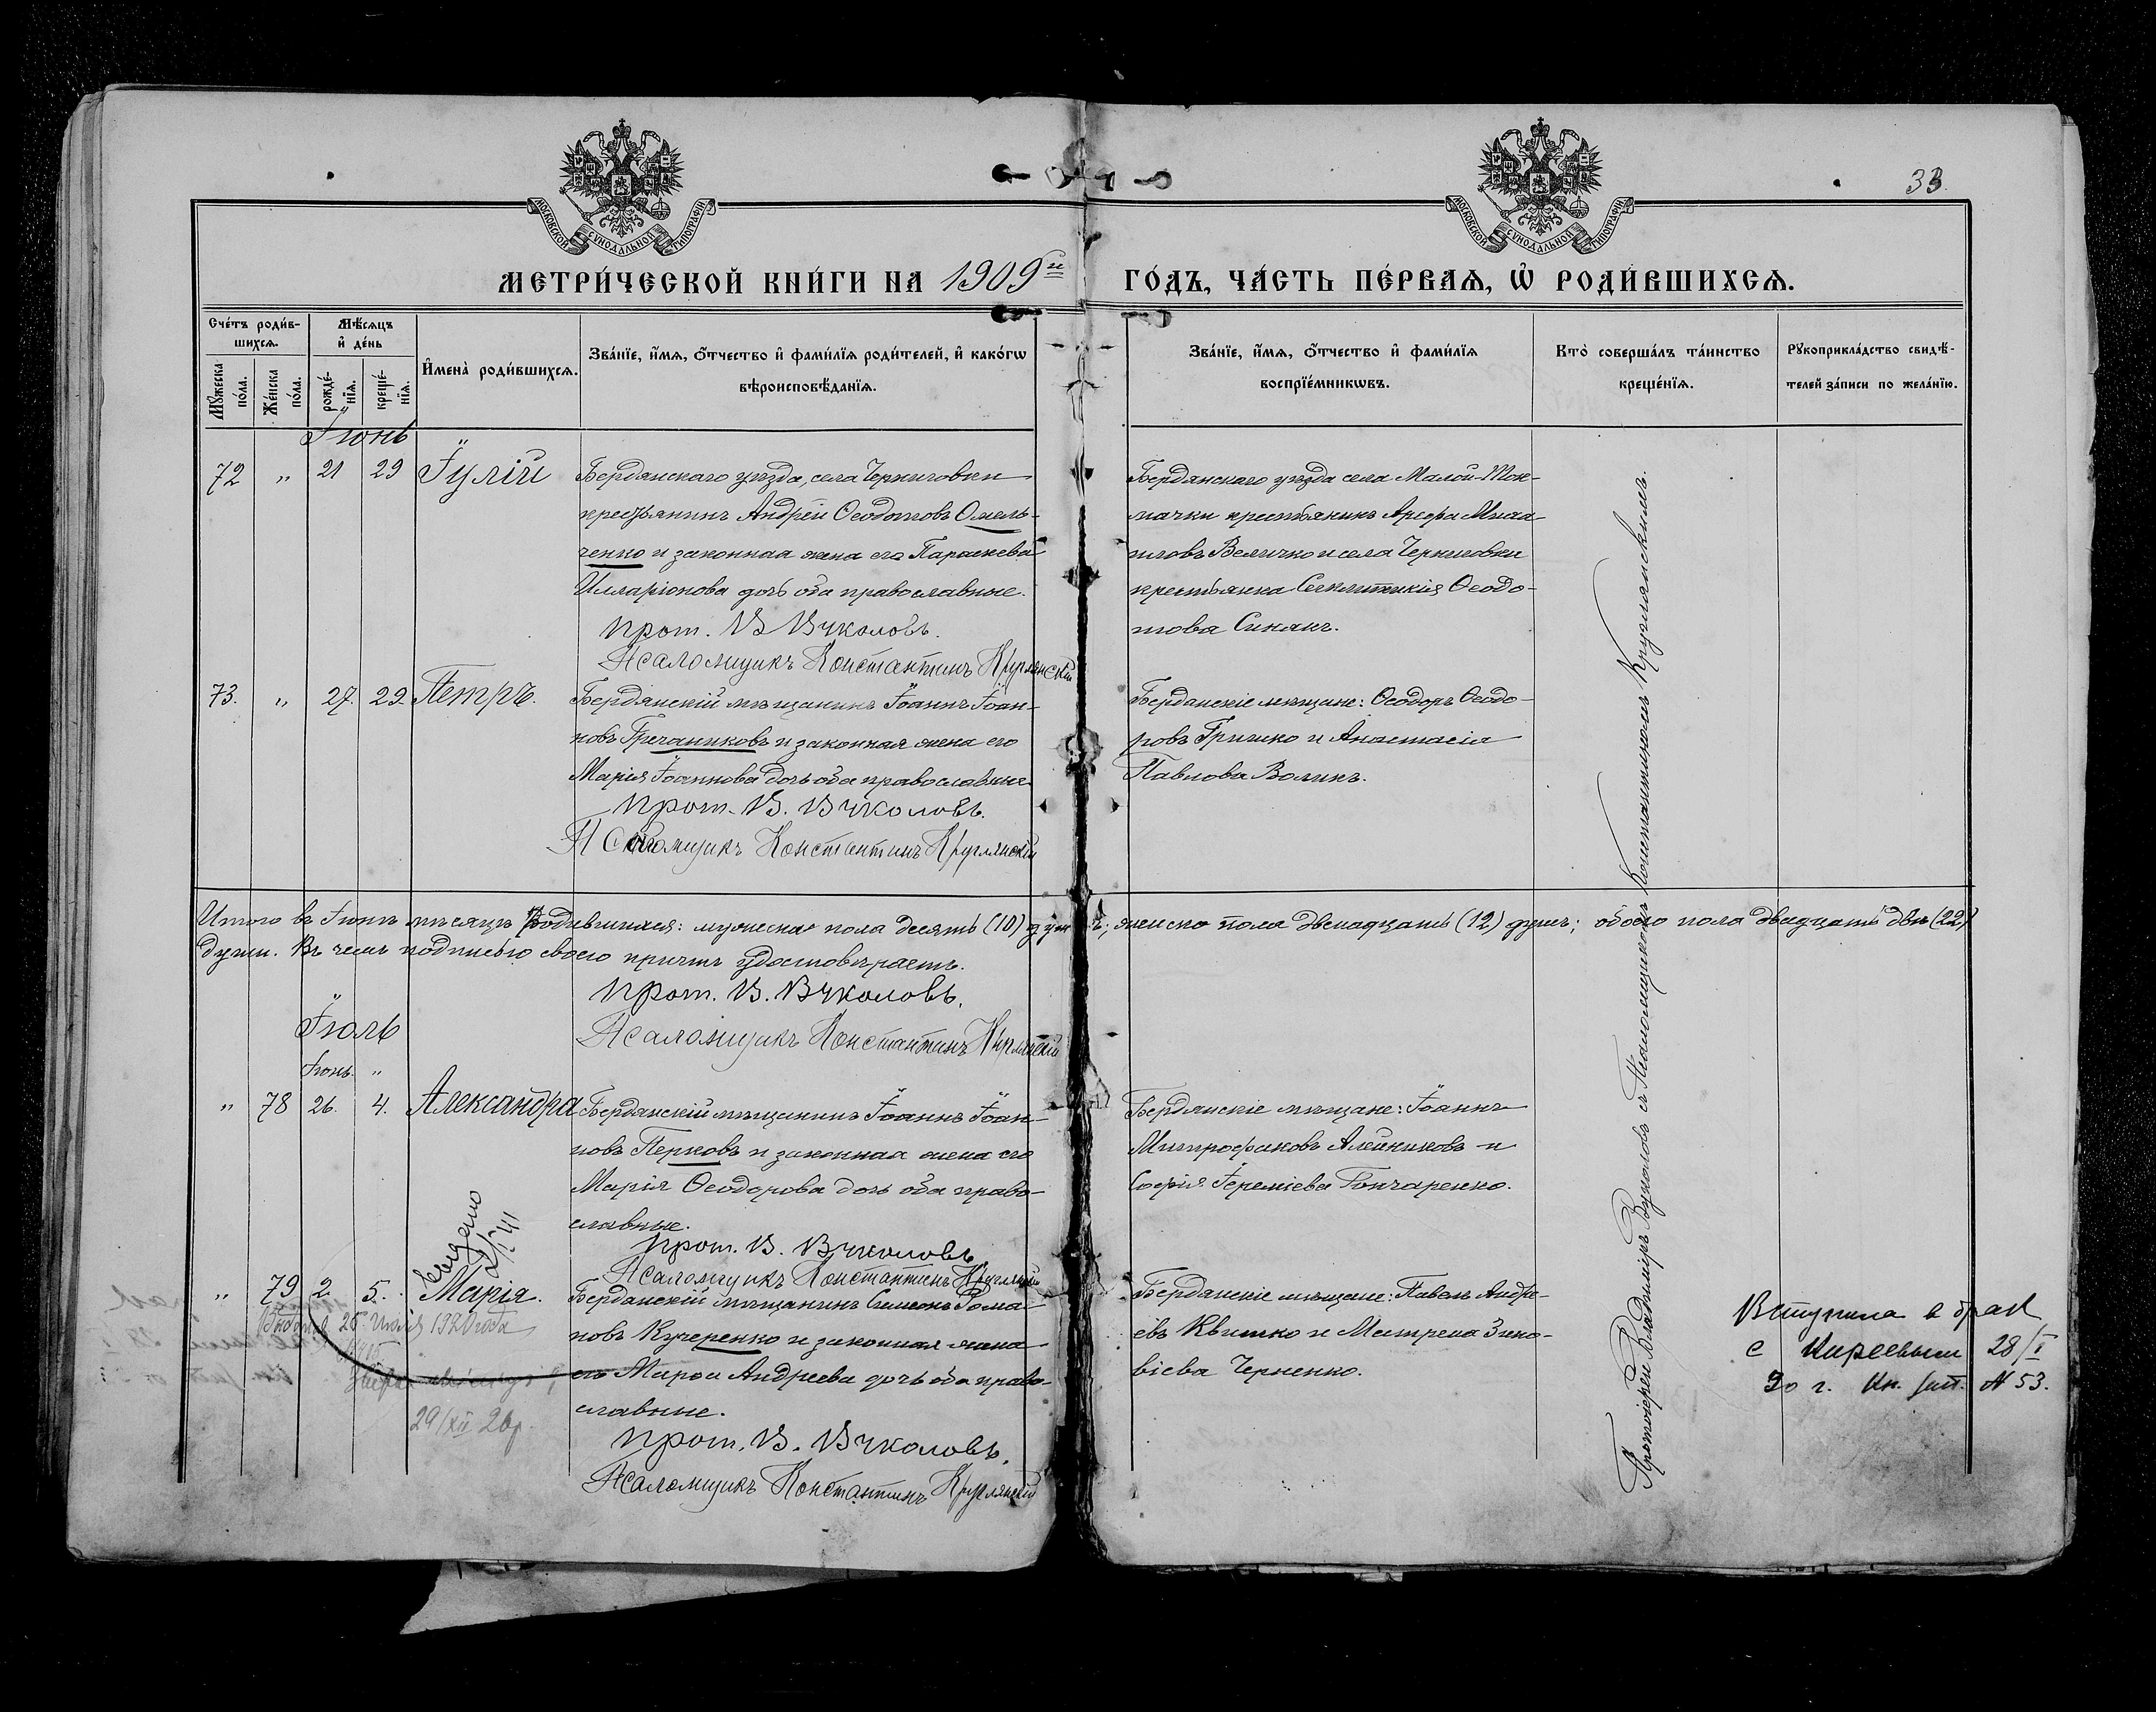 33.
МОСКОВСКОЙ СУНОДАЛЬНОЙ ТИПОГРАФІИ
МОСКОВСКОЙ СУНОДАЛЬНОЙ ТИПОГРАФІИ
МЕТРИ́ЧЕСКОЙ КНИ́ГИ НА 1909й ГО́ДЪ, ЧА́СТЬ ПЕ́РВАѦ, Ѡ҆ РОДИ́ВШИХСѦ.
Сче́тъ роди́в-
шихсѧ.
Мꙋжеска по́ла.
Же́нска по́ла.
Мѣ́сѧцъ
и҆ де́нь
рожде́-
нїѧ.
креще́-
нїѧ.
И҆мена̀ роди́вшихсѧ.
Зва́нїе, и҆́мѧ, ѻ҆́тчество и҆ фами́лїѧ роди́телей, и҆ како́гѡ
вѣроисповѣ́данїѧ.
Зва́нїе, и҆́мѧ, ѻ҆́тчество и҆ фами́лїѧ
воспрїе́мникѡвъ.
Кто̀ соверша́лъ та́инство
креще́нїѧ.
Рꙋкоприкла́дство свидѣ́-
телей за́писи по жела́нїю.
Іюнь
72 " 21 29 Іулій
Бердянскаго уѣзда, села Черниговки
крестьянинъ Андрей Ѳеодотовъ Омель-
ченко и законная жена его Параскева
Илларіонова дочь оба православные.
Прот. В. Вуколовъ.
Псаломщикъ Константинъ Круглянскій
Бердянскаго уѣзда села Малой-Ток-
мачки крестьянинъ Арефа
Величко и села Черниговки
крестьянка Синклитикія Ѳеодо-
това Синякъ.
73. " 27. 29. Петръ.
Бердянскій мѣщанинъ Іоаннъ Іоан-
новъ Гречаниковъ и законная жена его
Марія Іоаннова дочь оба православные
Прот. В. Вуколовъ.
Псаломщикъ Константинъ Круглянскій
Бердянскіе мѣщане: Ѳеодоръ Ѳеодо-
ровъ Гришко и Анастасія
Павлова Воликъ.
Итого въ Іюнѣ мѣсяцѣ родившихся: мужеска пола десять (10) душъ; женска пола двенадцать (12) душъ; обоего пола двадцать двѣ (22)
души. Въ чемъ подписью своею причтъ удостовѣряетъ.
Прот. В. Вуколовъ.
Псаломщикъ Константинъ Круглянскій
Іюль
Іюнь. "
" 78 26. 4. Александра
Бердянскій мѣщанинъ Іоаннъ Іоан-
новъ Перковъ и законная жена его
Марія Ѳеодорова дочь оба право-
славные.
Прот. В. Вуколовъ
Псаломщикъ Константинъ Круглянскій
Бердянскіе мѣщане: Іоаннъ
Митрофановъ Алейниковъ и
Софія Іереміева Гончаренко.
" 79 2. 5. Марія.
Выдано
2/I 41
26 Июля 1920 года
29/XII 26 г.
Бердянскій мѣщанинъ Симеонъ Рома-
новъ Кучеренко и законная жена
его Марѳа Андреева дочь оба право-
славные.
Прот. В. Вуколовъ.
Псаломщикъ Константинъ Круглянскій
Бердянскіе мѣщане: Павелъ Андре-
евъ Квитко и Матрена Зино-
віева Черненко.
Протоіерей Владиміръ Вуколовъ съ Псаломщикомъ Константиномъ Круглянскимъ.
Вступила в брак
с Киреевым 28/I
30 г. Кн. зап. N 53.